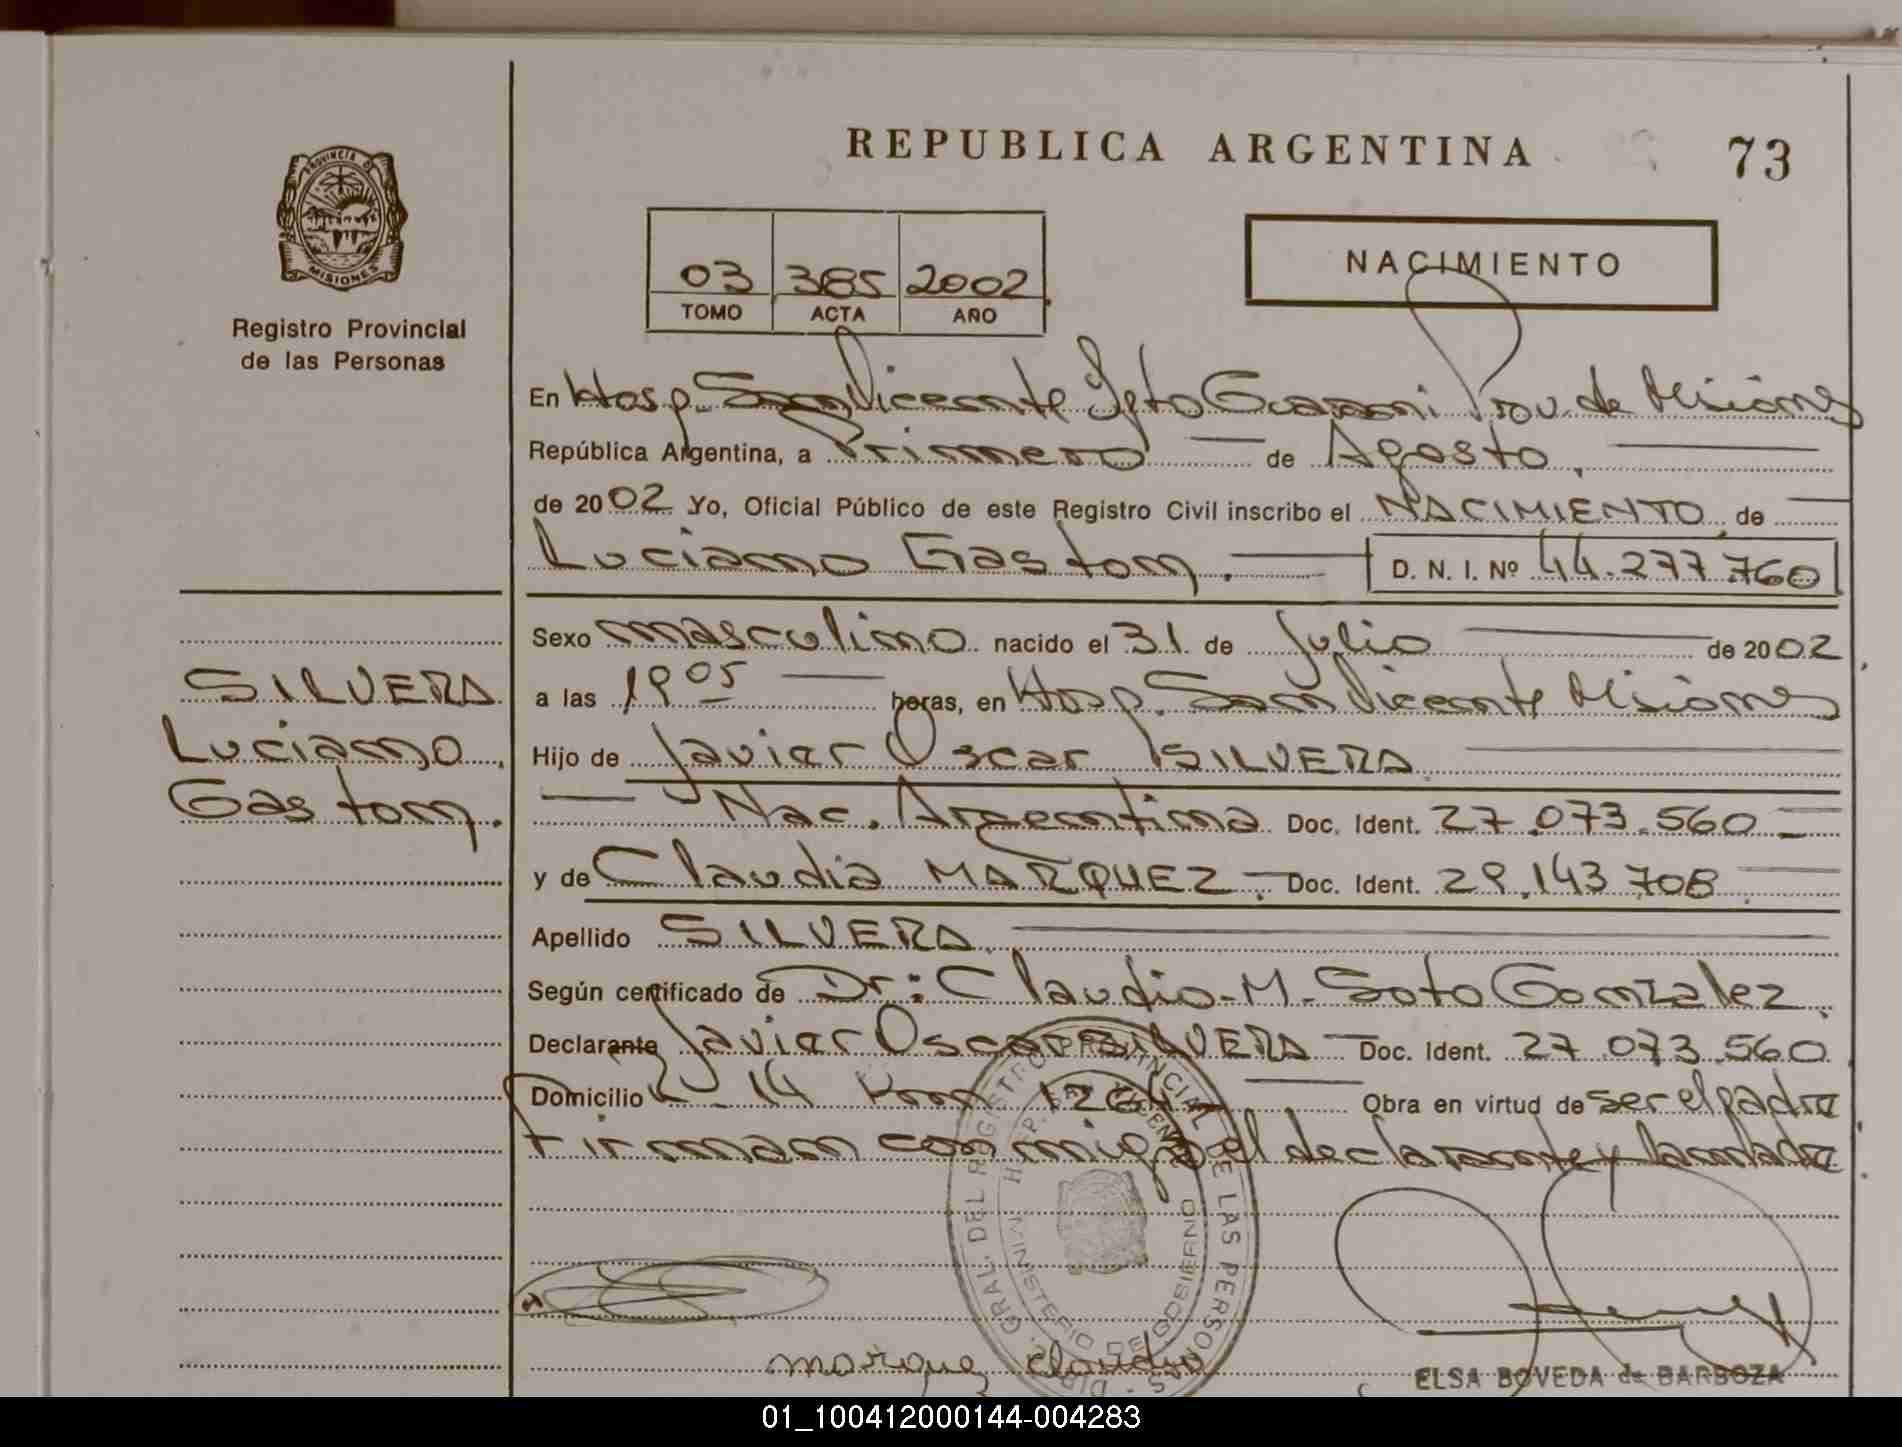 REPUBLICA ARGENTINA
73
PROVINCIA DE MISIONES
Registro Provincial
de las Personas
03 385 2002
TOMO ACTA AÑO
NACIMIENTO
En Hosp. San Vicente Dpto Guarani Prov. de Misiones
República Argentina, a Primero de Agosto.
de 2002 Yo, Oficial Público de este Registro Civil inscribo el NACIMIENTO de
Luciano Gaston. D. N. I. Nº 44.277.760
Sexo masculino nacido el 31 de Julio de 2002
a las 19 05 horas, en Hosp. San Vicente Misiones
SILVERA
Luciano
Gaston.
Hijo de Javier Oscar SILVERA
Nac. Argentina Doc. Ident. 27.073.560
y de Claudia MARQUEZ. Doc. Ident. 29.143.708
Apellido SILVERA
Según certificado de Dr: Claudio M. Soto Gonzalez
Declarante Javier Oscar SILVERA Doc. Ident. 27.073.560
Domicilio 14 Km 1264 Obra en virtud de ser el padre
Firman conmigo el declarante y la madre
DIR. GRAL. DEL REGISTRO PROVINCIAL DE LAS PERSONAS
HOSP. SAN VICENTE
MINISTERIO DE GOBIERNO
marquez claudia
ELSA BOVEDA de BARBOZA
01_100412000144-004283